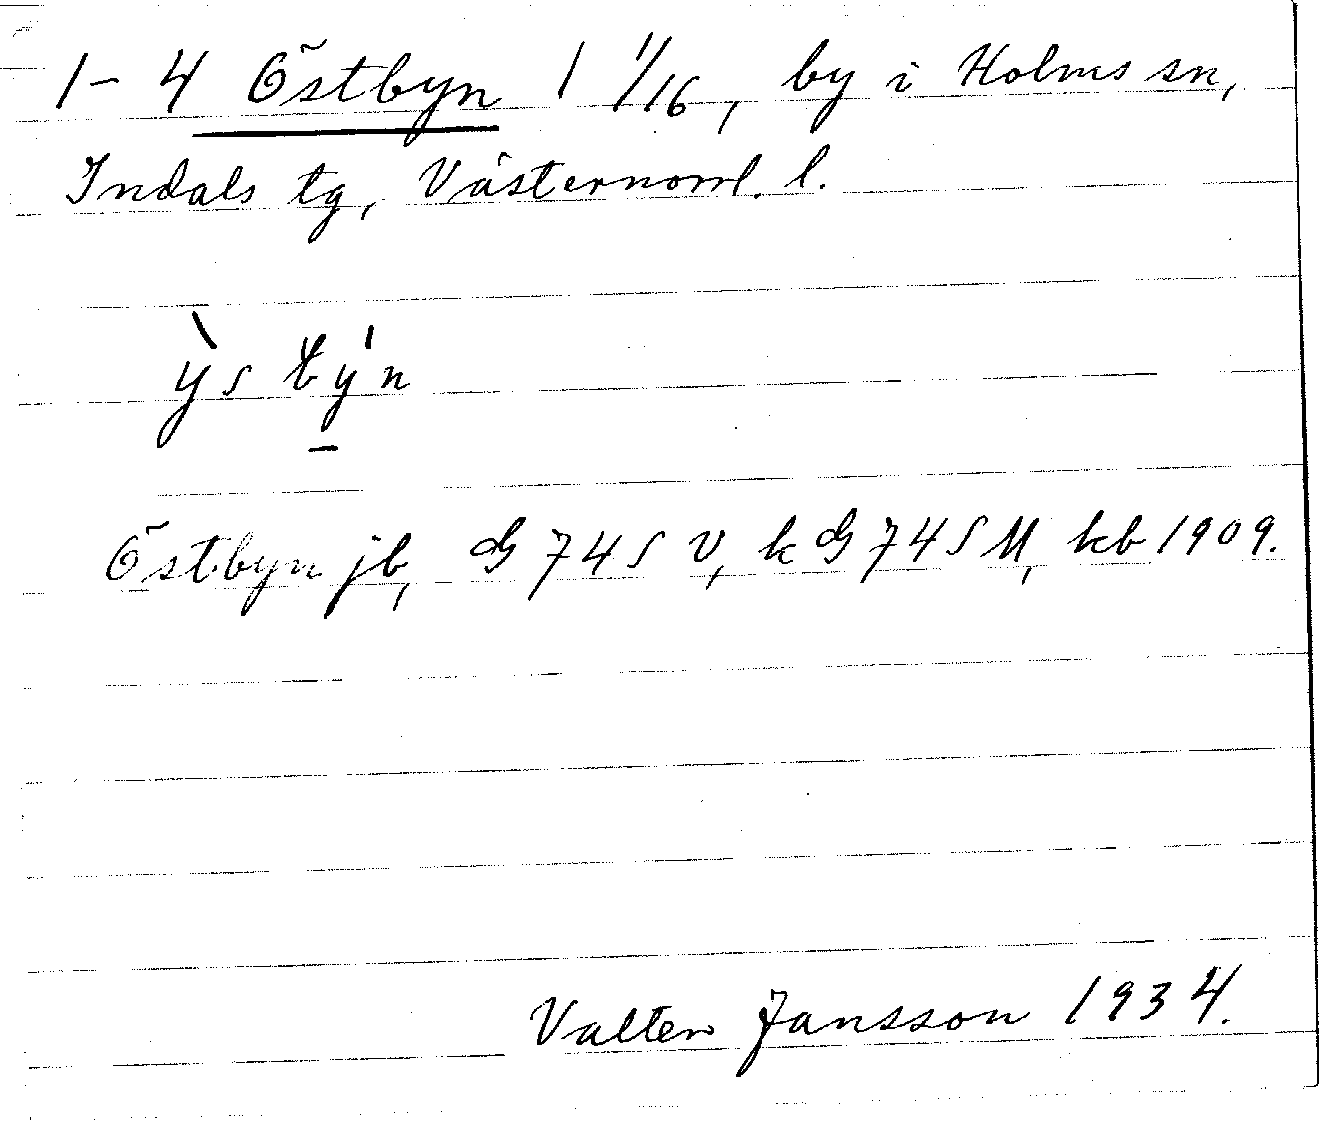 1-4 Östbyn 1 1/16, by i Holms sn,
Indals tg, Västernorrl. l.
ỳs týn
Östbyn jb, G 745 V, k G 745 M, kb 1909.
Valter Jansson 1934.